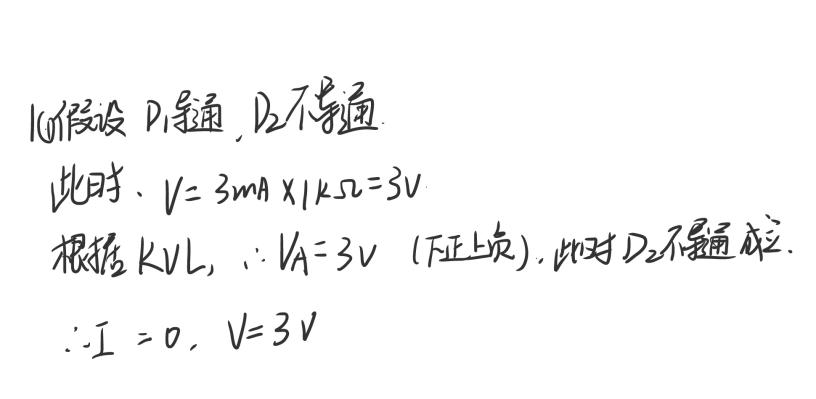 1(1)假设 D₁导通,D₂不导通.
此时、V=3mA×1kΩ=3V.
根据KVL,∴VA=3V (下正上负),此时D₂不导通成立.
∴I=0, V=3V